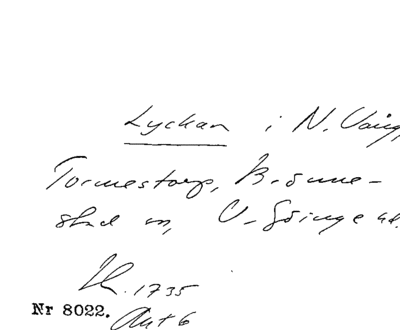 Lyckan i N. Vång
Tormestorp, Brönne-
stad sn, V. Göinge hd.
LK. 1735
Nr 8022. Akt 6